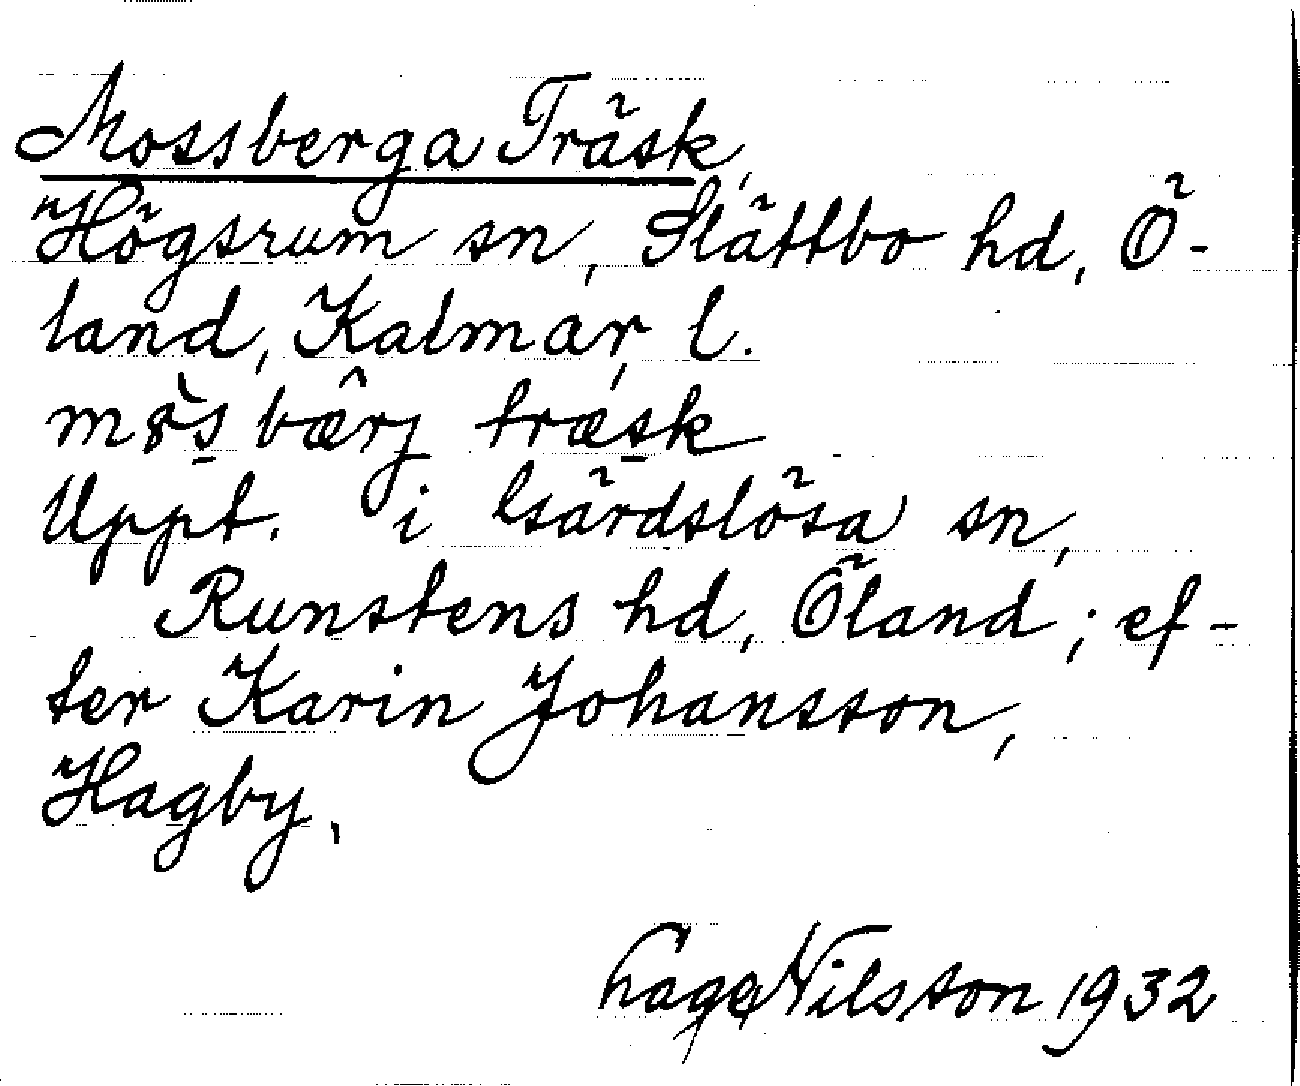 Mossberga Träsk,
Högsrum sn, Slättbo hd, Ö-
land, Kalmar l.
bærj træsk
Uppt. i Gärdslösa sn,
Runstens hd, Öland; ef-
ter Karin Johansson,
Hagby.
Nilsson 1932